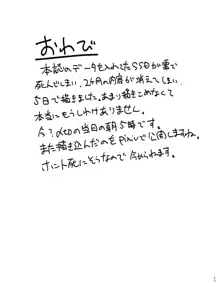 おわび
本誌のデータを入れたSSDが雷で
死んでしまい、2ヶ月の内容が消えてしまい、
5日で描きました。あまり描きこめなくて
本当にもうしわけありません。
今、の当日の朝5時です。
また描き込んだのをpixivで公開しますね。
ホント死にそうなので今からねます。